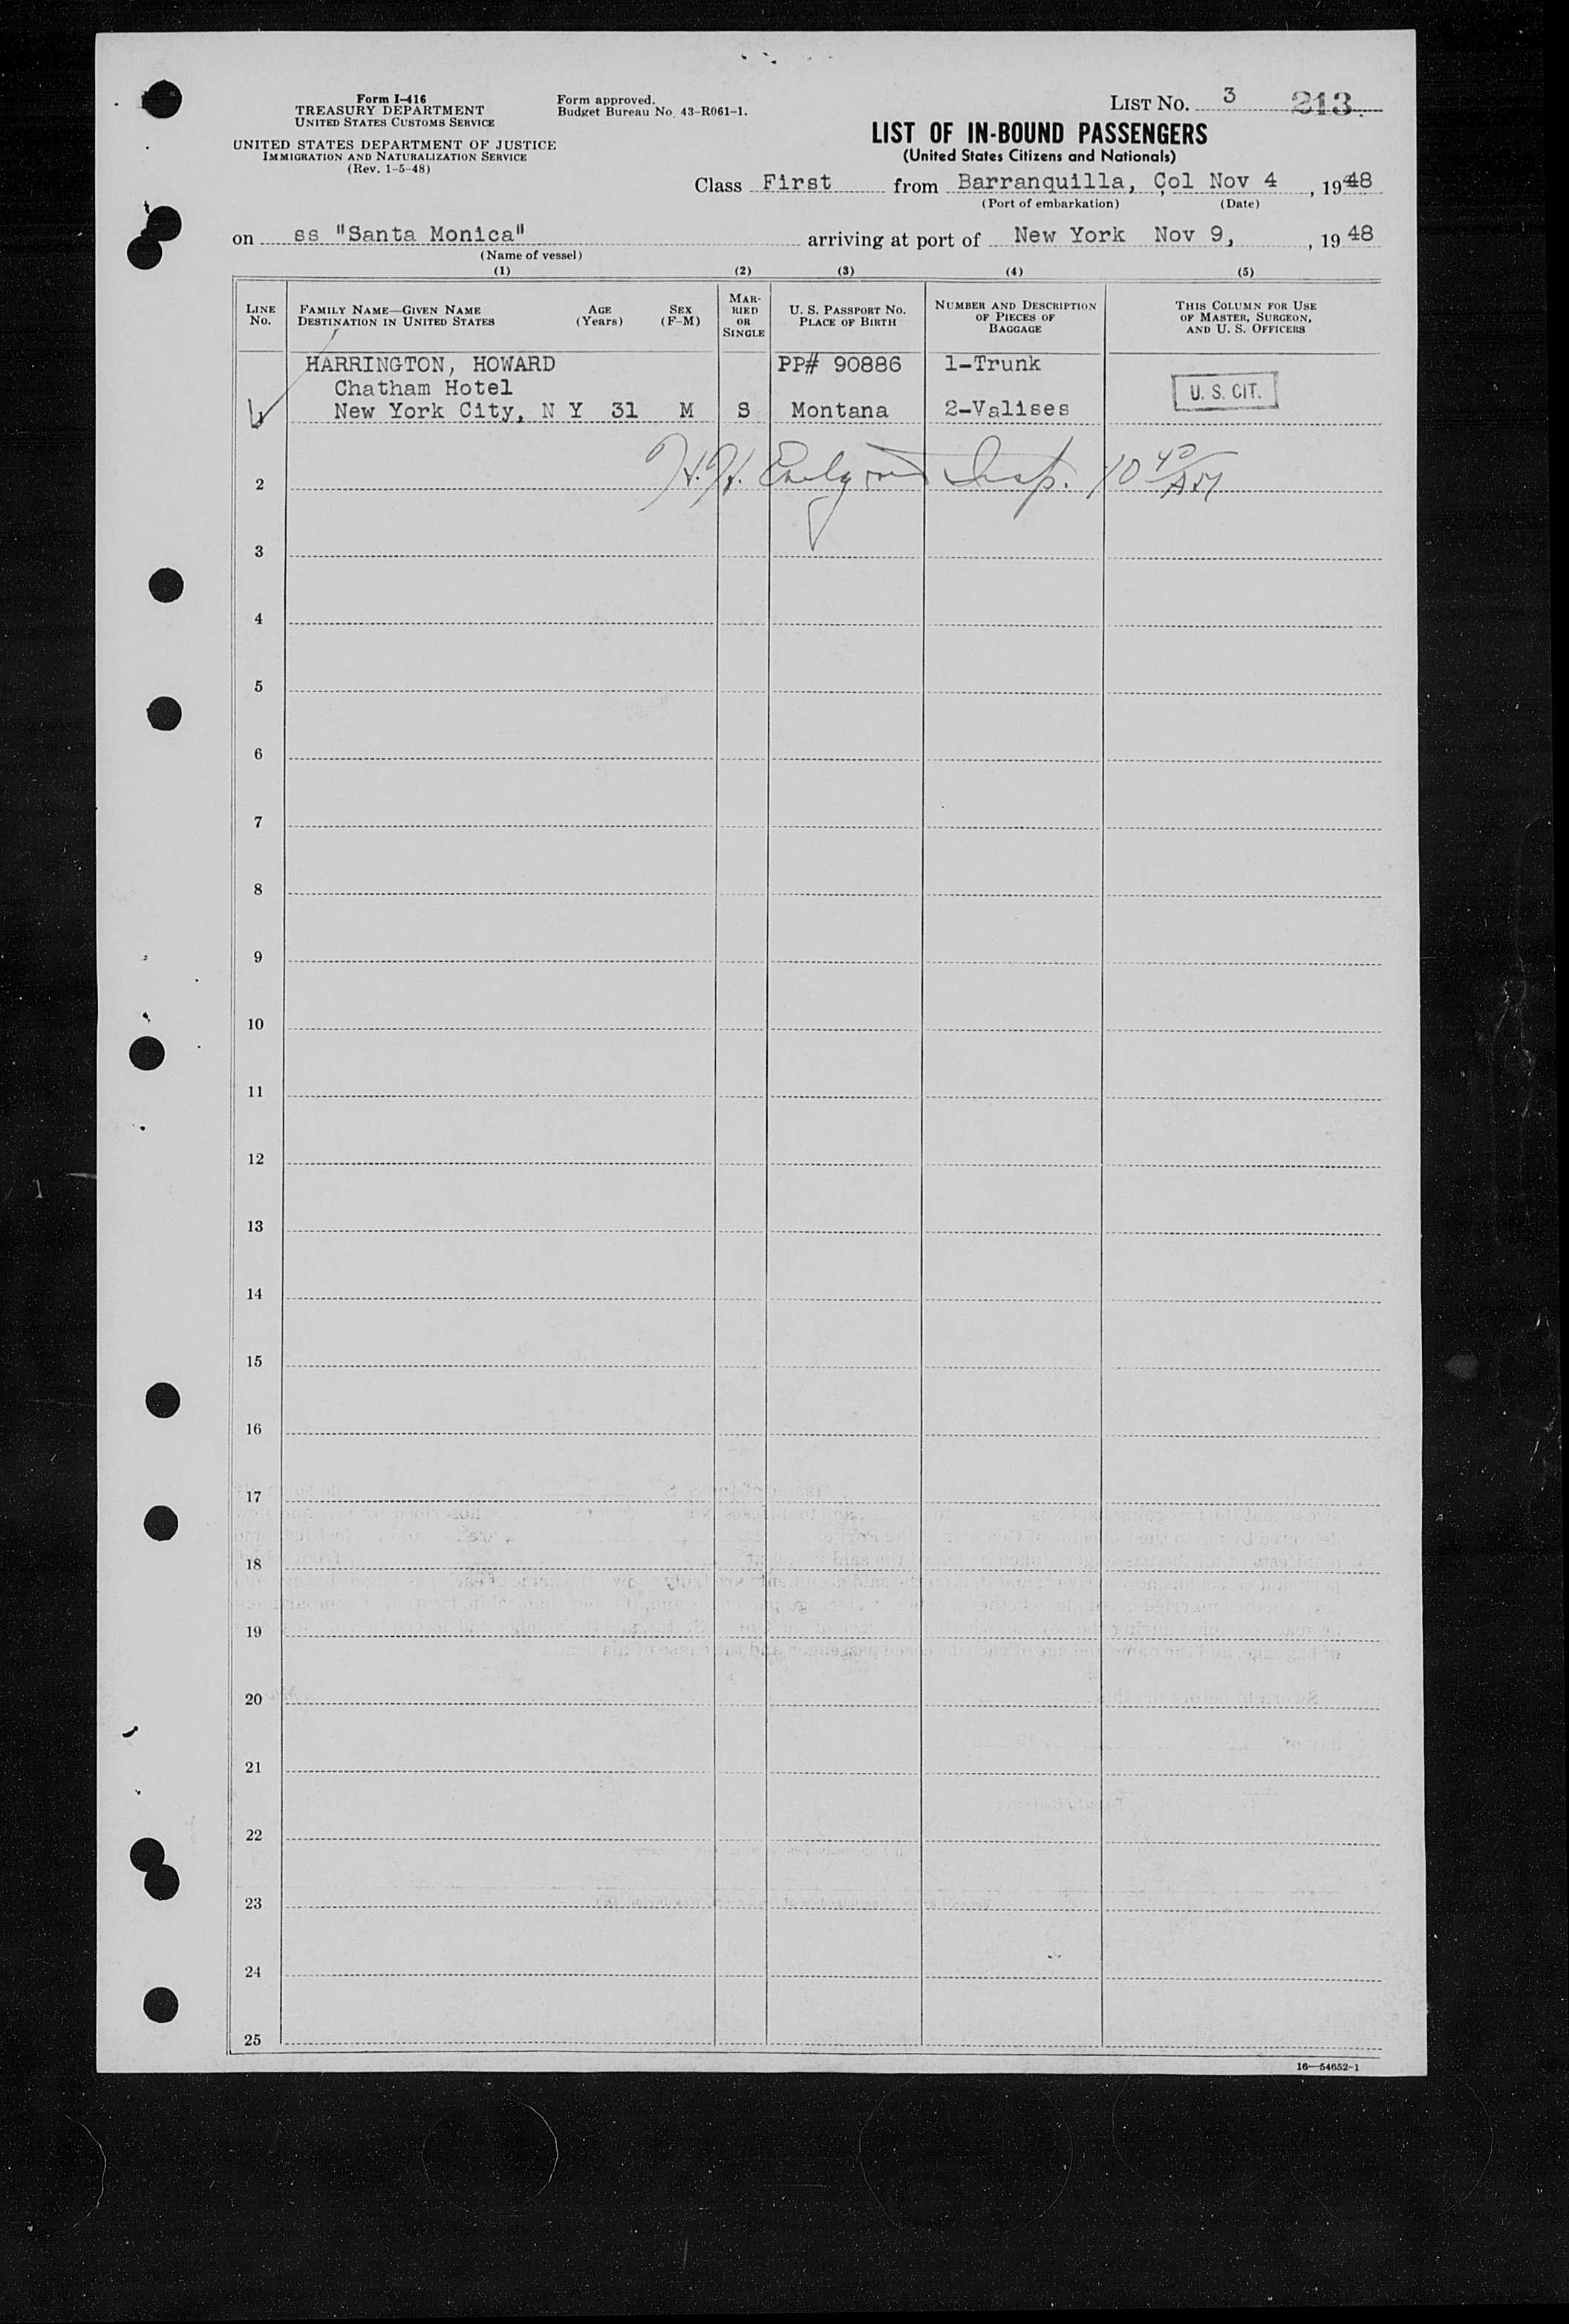 Form I-416
TREASURY DEPARTMENT
UNITED STATES CUSTOMS SERVICE
UNITED STATES DEPARTMENT OF JUSTICE
IMMIGRATION AND NATURALIZATION SERVICE
(Rev. 1-5-48)
Form approved.
Budget Bureau No. 43-R061-1.
LIST No. 3 213
LIST OF IN-BOUND PASSENGERS
(United States Citizens and Nationals)
Class First from Barranquilla, Col Nov 4, 1948
(Port of embarkation) (Date)
on ss "Santa Monica" arriving at port of New York Nov 9, , 19 48
(Name of vessel)
(1) (2) (3) (4) (5)
LINE No.
FAMILY NAME—GIVEN NAME
DESTINATION IN UNITED STATES
AGE (Years)
SEX (F-M)
MARRIED OR SINGLE
U. S. PASSPORT No.
PLACE OF BIRTH
NUMBER AND DESCRIPTION
OF PIECES OF
BAGGAGE
THIS COLUMN FOR USE
OF MASTER, SURGEON,
AND U. S. OFFICERS
HARRINGTON, HOWARD PP# 90886 1-Trunk
Chatham Hotel U. S. CIT.
1 New York City, N Y 31 M S Montana 2-Valises
H. H. Insp. 10 40 AM
2
3
4
5
6
7
8
9
10
11
12
13
14
15
16
17
18
19
20
21
22
23
24
25
16—54652-1